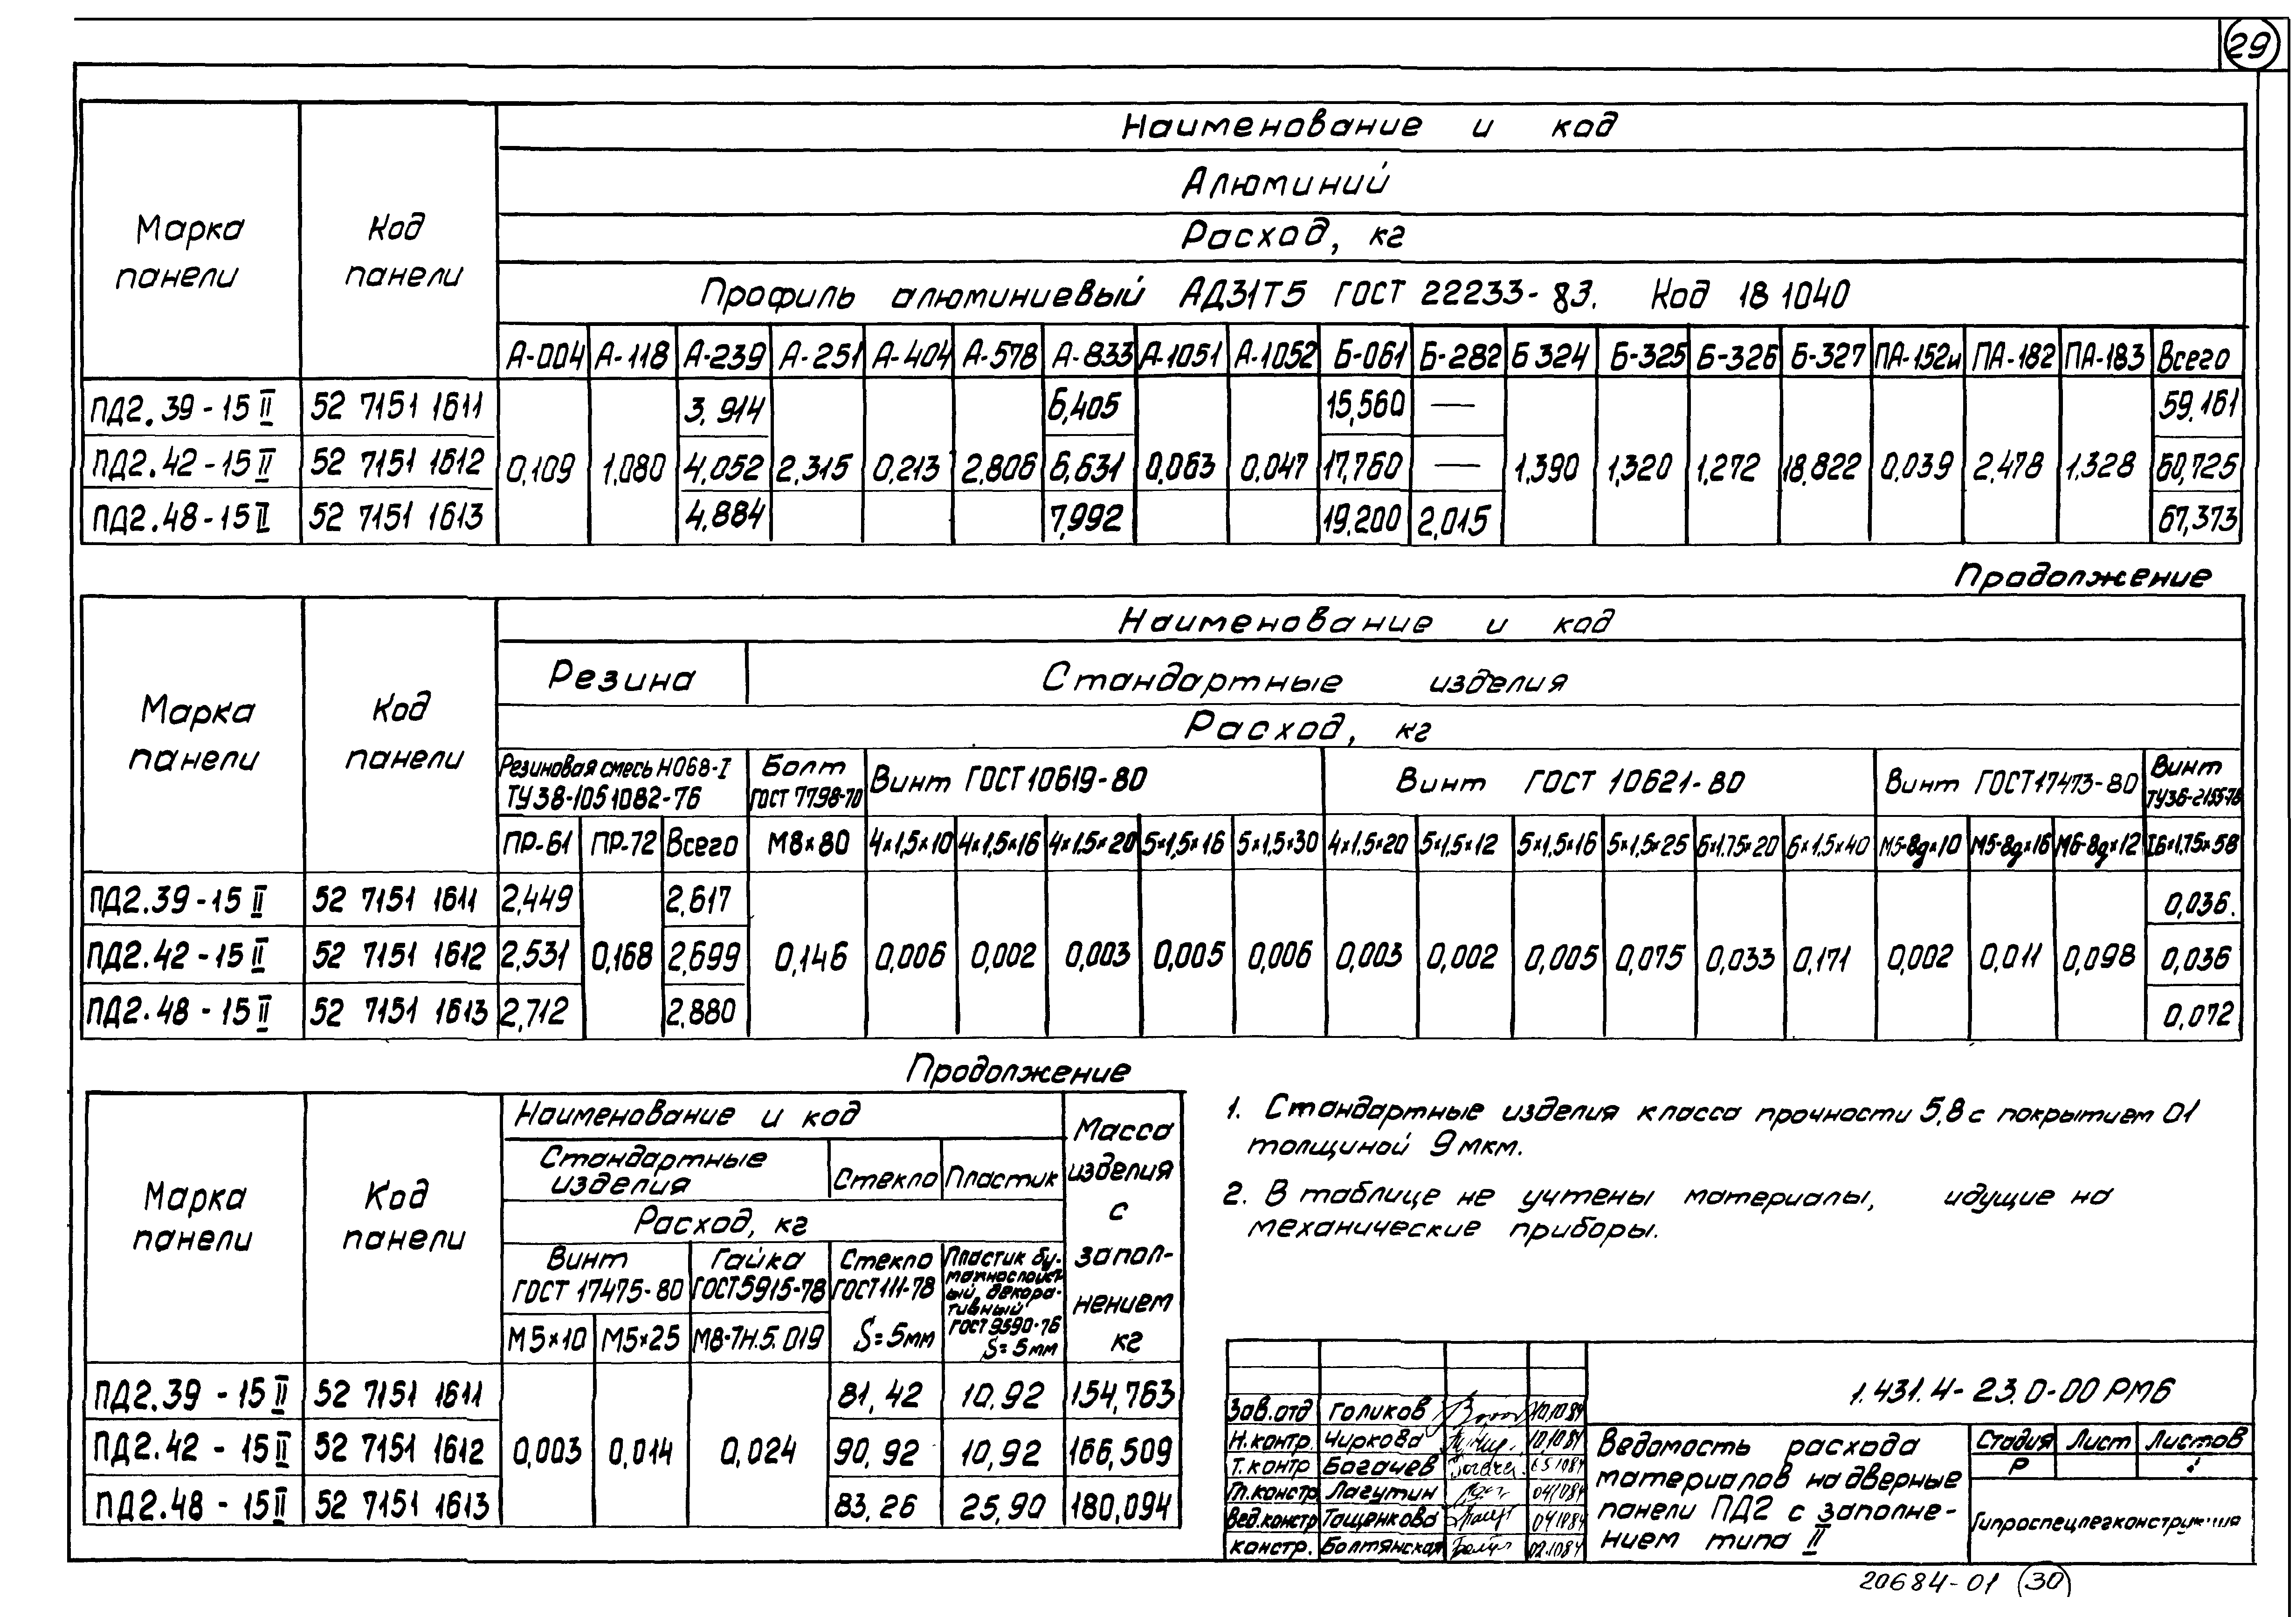 29
Наименование и код
Алюминий
Марка панели
Код панели
Расход, кг
Профиль алюминиевый АД31Т5 ГОСТ 22233-83. Код 18 1040
А-004 А-118 А-239 А-251 А-404 А-578 А-833 А-1051 А-1052 Б-061 Б-282 Б 324 Б-325 Б-326 Б-327 ПА-152и ПА-182 ПА-183 Всего
ПД2.39-15 II 52 7151 1611 3,914 6,405 15,560 — 59,161
ПД2.42-15 II 52 7151 1612 0,109 1,080 4,052 2,315 0,213 2,806 6,631 0,063 0,047 17,760 — 1,390 1,320 1,272 18,822 0,039 2,478 1,328 60,725
ПД2.48-15 II 52 7151 1613 4,884 7,992 19,200 2,015 67,373
Продолжение
Наименование и код
Резина Стандартные изделия
Марка панели
Код панели
Расход, кг
Резиновая смесь НО68-I ТУ38-105 1082-76
Болт ГОСТ 7798-70
Винт ГОСТ 10619-80
Винт ГОСТ 10621-80
Винт ГОСТ 17473-80
Винт
ПР-61 ПР-72 Всего М8×80 4×1,5×10 4×1,5×16 4×1,5×20 5×1,5×16 5×1,5×30 4×1,5×20 5×1,5×12 5×1,5×16 5×1,5×25 6×1.75×20 6×1,5×40 М5-8g×10 М5-8g×16 М6-8g×12 I6×1.75×58
ПД2.39-15 II 52 7151 1611 2,449 2,617 0,036.
ПД2.42-15 II 52 7151 1612 2,531 0,168 2,699 0,146 0,006 0,002 0,003 0,005 0,006 0,003 0,002 0,005 0,075 0,033 0,171 0,002 0,011 0,098 0,036
ПД2.48-15 II 52 7151 1613 2,712 2,880 0,072
Продолжение
Наименование и код
Марка панели
Код панели
Стандартные изделия
Стекло Пластик
Масса изделия с заполнением кг
Расход, кг
Винт ГОСТ 17475-80
Гайка ГОСТ 5915-78
Стекло ГОСТ 111-78
Пластик бумажнослоистый декоративный ГОСТ 9590-76
М5×10 М5×25 М8-7Н.5.019 S=5мм S=5мм
ПД2.39-15 II 52 7151 1611 81,42 10,92 154,763
ПД2.42-15 II 52 7151 1612 0,003 0,014 0,024 90,92 10,92 166,509
ПД2.48-15 II 52 7151 1613 83,26 25,90 180,094
1. Стандартные изделия класса прочности 5,8 с покрытием 01
толщиной 9 мкм.
2. В таблице не учтены материалы, идущие на
механические приборы.
1.431.4-23.0-00 РМ6
Зав.отд Голиков 10.10.84
Н.контр. Чиркова 10.10.84
Т.контр Богачев
Гл.констр Лагутин 04.10.84
Вед.констр Тащенкова 04.10.84
констр. Болтянская 02.10.84
Ведомость расхода
материалов на дверные
панели ПД2 с заполне-
нием типа II
Стадия Лист Листов
Р
Гипроспецлегконструкция
20684-01 30